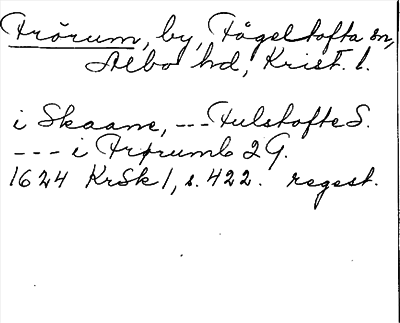 Frörum, by, Fågeltofta sn,
Albo hd, Krist. l.
i Skaane, --- Fulstofte S.
--- i Frørumb 2 G.
1624 KrSk 1, s. 422. regest.